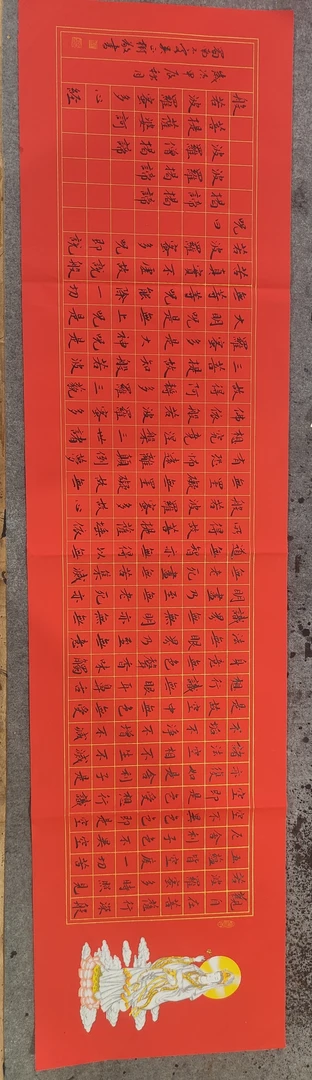 觀自在菩薩行深般
若波羅蜜多時照見
五蘊皆空度一切苦
厄舍利子色不異空
空不異色色即是空
空即是色受想行識
亦復如是舍利子是
諸法空相不生不滅
不垢不淨不增不減
是故空中無色無受
想行識無眼耳鼻舌
身意無色聲香味觸
法無眼界乃至無意
識界無無明亦無無
明盡乃至無老死亦
無老死盡無苦集滅
道無智亦無得以無
所得故菩提薩埵依
般若波羅蜜多故心
無罣礙無罣礙故無
有恐怖遠離顛倒夢
想究竟涅槃三世諸
佛依般若波羅蜜多
故得阿耨多羅三藐
三菩提故知般若波
羅蜜多是大神咒是
大明咒是無上咒是
無等等咒能除一切
苦真實不虛故說般
若波羅蜜多咒即說
咒曰
揭諦揭諦
波羅揭諦
波羅僧揭諦
菩提薩婆訶
般若波羅蜜多心經
歲次甲辰秋月
敬書